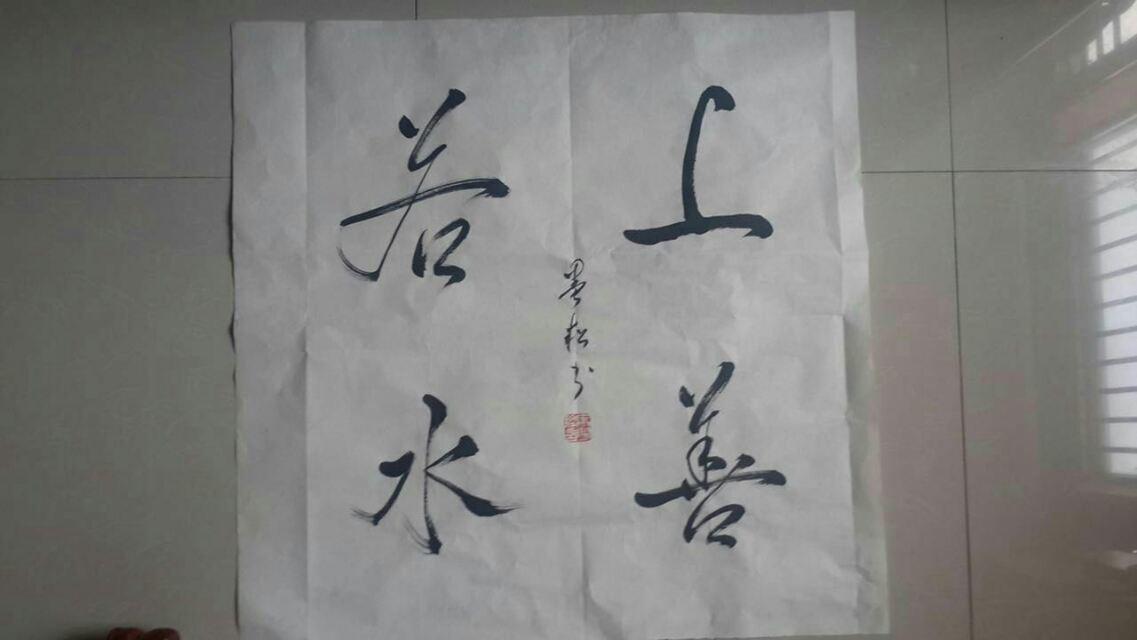 上善
若水
墨松书